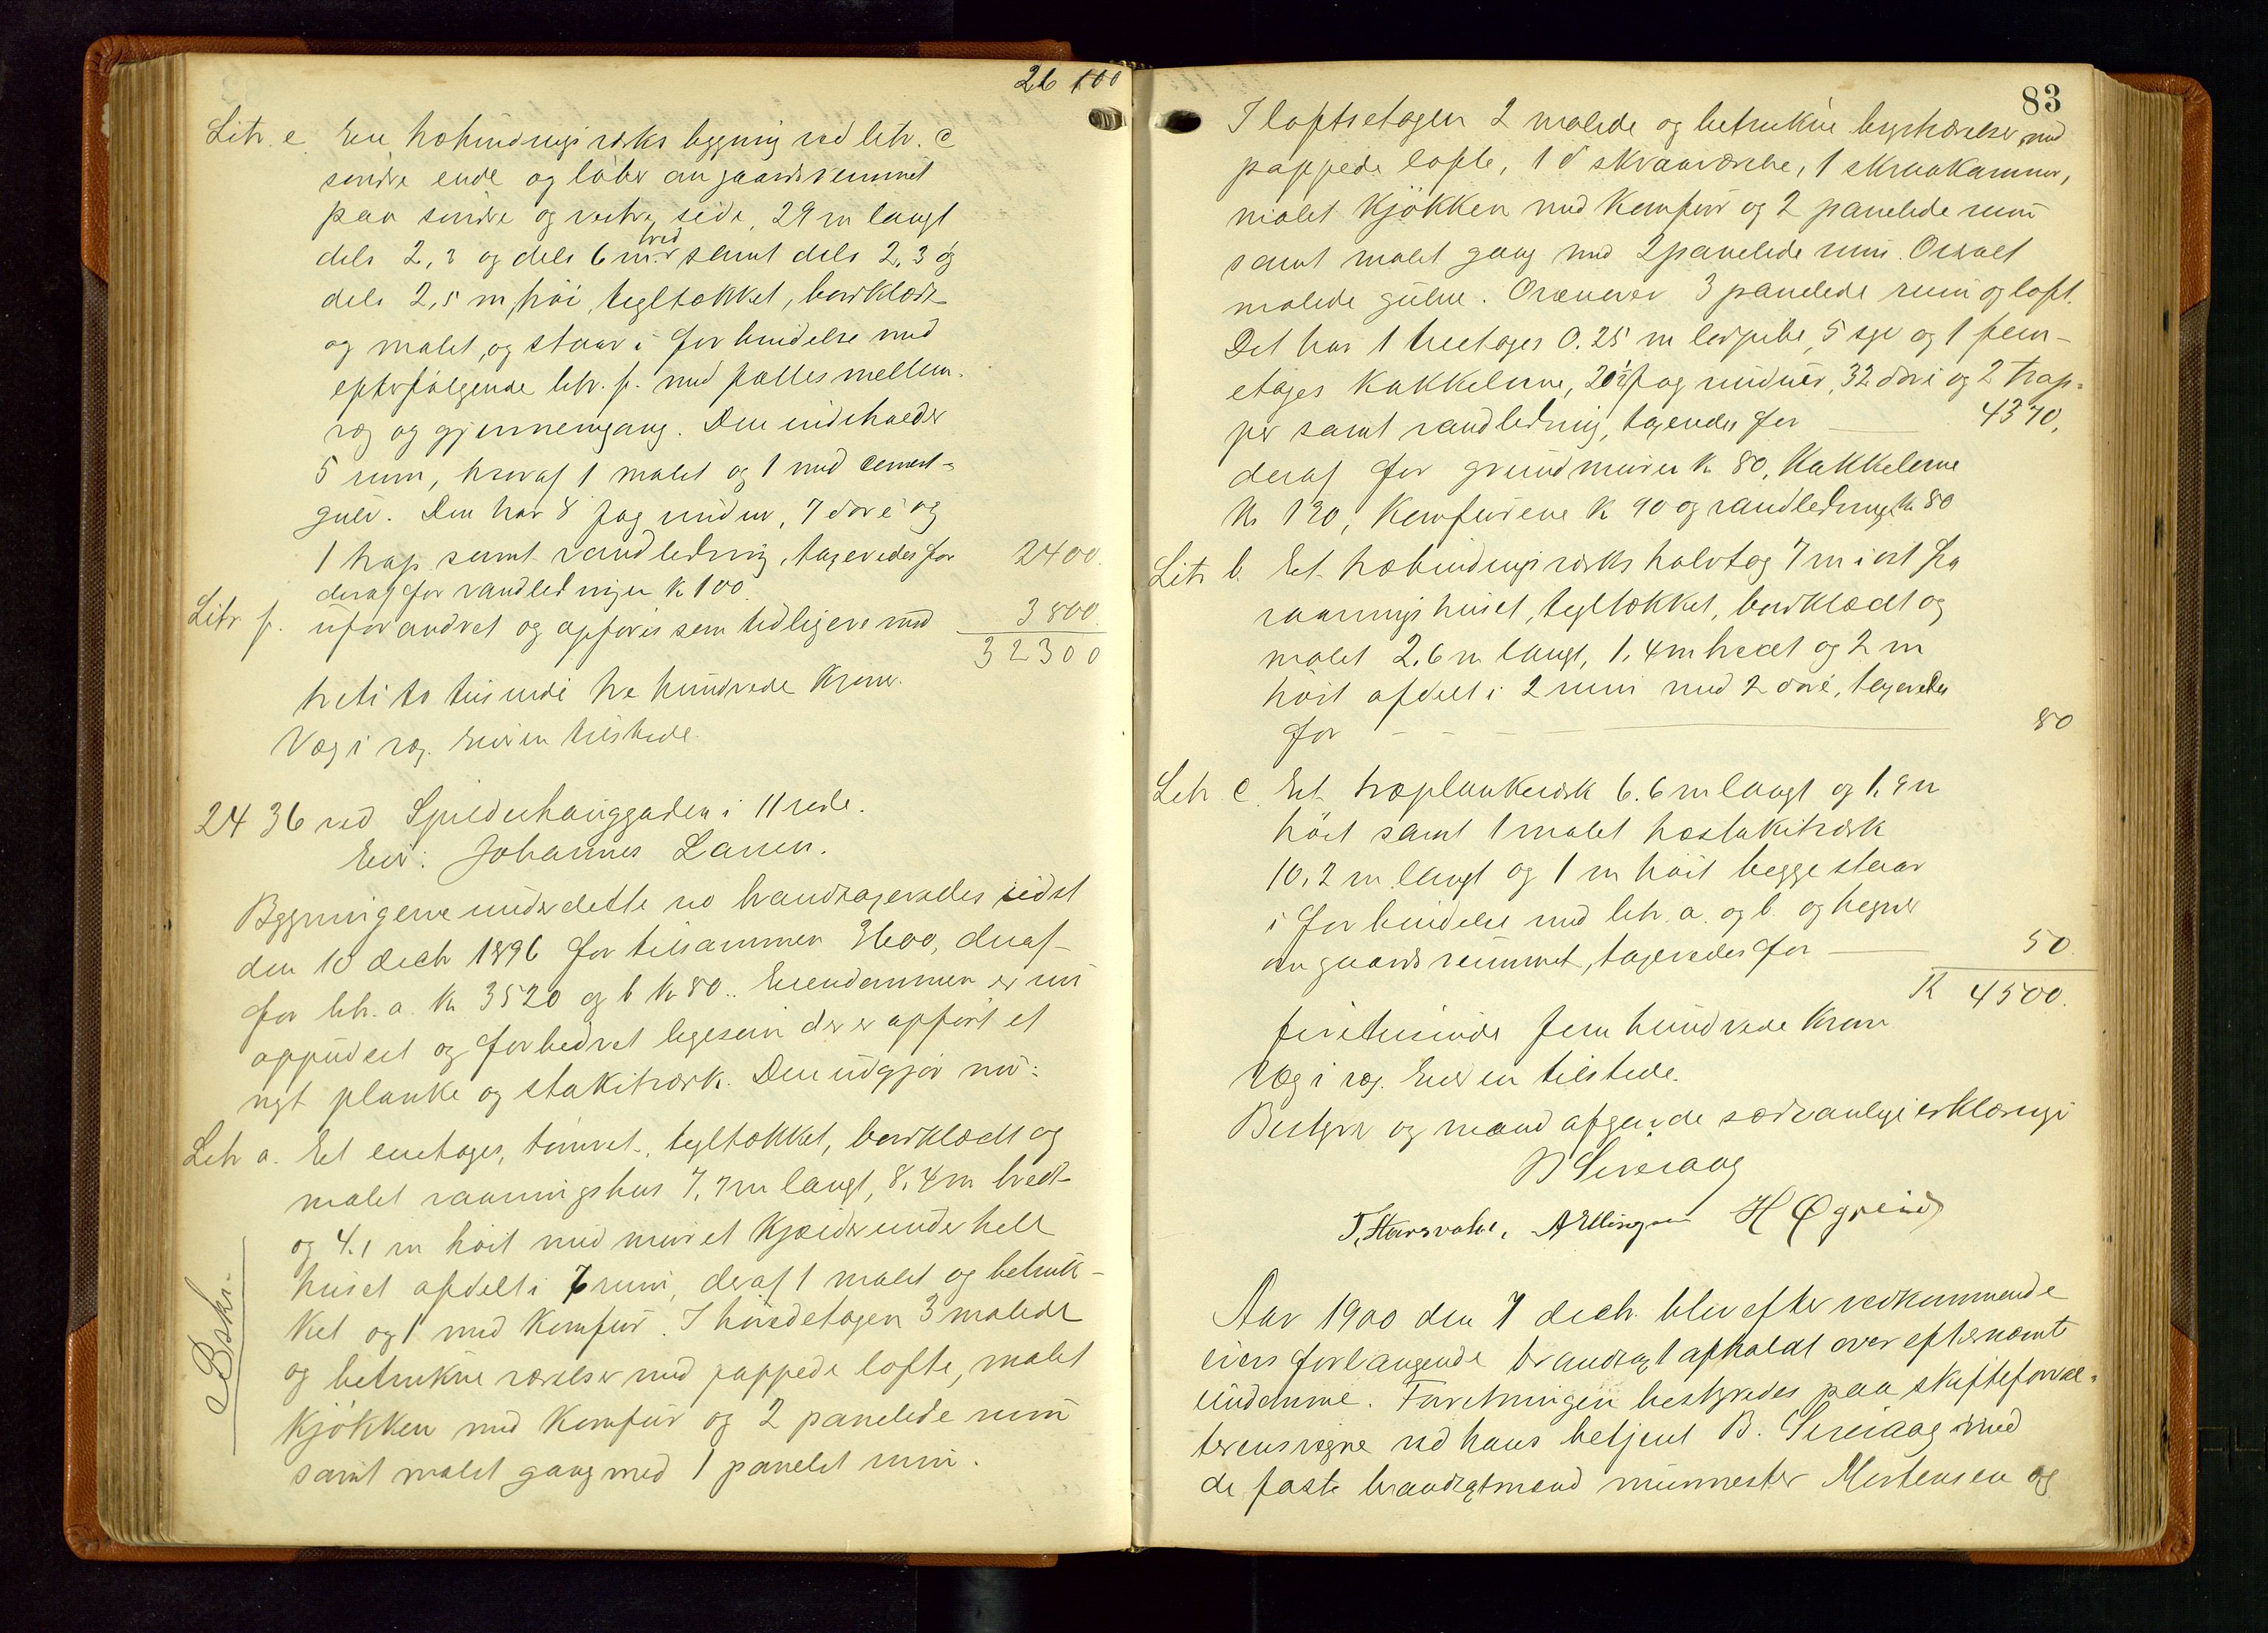 26 100
Litr. e. En træbindingsverks bygning ved letr. c
søndre ende og løber om gaardsrummet
paa søndre og vestre side, 29 m langt
dels 2,3 og dels 6 m bred samt dels 2,3 og
dels 2,5 m høi, tegltækket, bordklædt
og malet, og staar i forbindelse med
efterfølgende letr. f. med fælles mellem-
væg og gjennemgang. Den indeholder
5 rum, hvoraf 1 malet og 1 med cement-
gulv. Den har 8 fag vinduer, 7 døre og
1 trap samt vandledning, taxeredes for 2400.
deraf for vandledningen K 100.
Litr f. uforandret og opføres som tidligere med 3800.
32300
treti to tusinde tre hundrede Kroner.
Væg i væg. Eieren tilstede.
2436 ved Spilderhauggaden i 11 rode.
Eier: Johannes Larsen.
Bygningerne under dette no brandtaxeredes sidst
den 10 decbr 1896 for tilsammen 3600, deraf
for letr. a. Kr 3520 og b Kr 80.. Eiendommen er nu
oppudset og forbedret ligesom der er opført et
nyt planke og stakitværk. Den udgjør nu:
Letr a. Et enetages, tømret, tegltækket, bordklædt og
malet vaaningshus 7,7 m langt, 8,4 m bredt
og 4,1 m høit med muret Kjælder under hele
huset afdelt i 7 rum, deraf 1 malet og betruk-
ket og 1 med Komfur. I hovedetagen 3 malede
og betrukne værelser med pappede lofte, malet
Kjøkken med Komfur og 2 panelede rum
samt malet gang med 1 panelet rum.
Beskr.
83
I loftsetagen 2 malede og betrukne kvistværelser med
pappede lofte, 1 d° skraaværelse, 1 skraakammer,
malet Kjøkken med Komfur og 2 panelede rum
samt malet gang med 2 panelede rum. Overalt
malede gulve. Ovenover 3 panelede rum og loft.
Det har 1 treetages 0.25 m lerpibe, 5 og 1 fem-
etages Kakkelovne, 20½ fag vinduer, 32 døre og 2 trap-
per samt vandledning, taxeredes for 4370,
deraf for grundmuren K 80, Kakkelovne
Kr 130, Komfurene K 90 og vandledning Kr 80
Litr b. Et træbindingsverks halvtag 7 m i øst fra
vaaningshuset, tegltækket, bordklædt og
malet 2,6 m langt, 1,4 m bredt og 2 m
høit afdelt i 2 rum med 2 døre, taxeredes
for 80
Letr c. Et træplankeværk 6.6 m langt og 1,9 m
høit samt 1 malet træstakitværk
10,2 m langt og 1 m høit begge staar
i forbindelse med letr. a. og b. og hegner
om gaardsrummet, taxeredes for 50.
K 4500.
firetusinde fem hundrede Kroner
Væg i væg. Eieren tilstede.
Bestyrer og mænd afgav de sædvanlige erklæringer
B Sireraag
T. Haarvold. A Ellingsen H Øgreid
Aar 1900 den 7 decbr. blev efter vedkommende
eiers forlangende brandtaxt afholdt over efternævnte
eiendomme. Forretningen bestyredes paa skifteforval-
terens vegne ved hans betjent B. Sireraag med
de faste brandtaxtmænd murmester Mortensen og